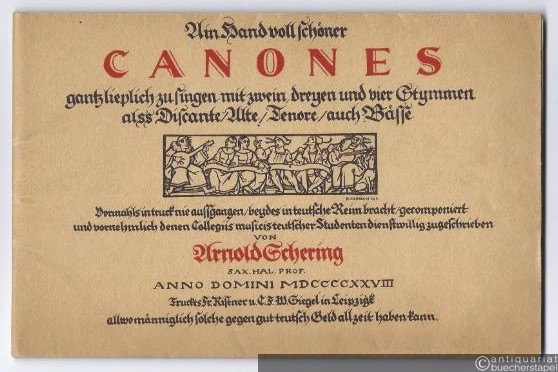 Ain Hand voll schöner
CANONES
gantz lieplich zu singen mit zwein dreyen und vier Stymmen
alss Discante/Alte/Tenore/auch Bässe
Vormahls in truck nie aussgangen/beydes in teutsche Reim bracht/gecomponiert
und vornehmlich denen Collegiis musicis teutscher Studenten dienstwillig zugeschrieben
VON
Arnold Schering
SAX. HAL. PROF.
ANNO DOMINI MDCCCCXXVIII
Truckts Fr. Kistner u. C. F. W. Siegel in Leipzigk
allwo männiglich solche gegen gut teutsch Geld all zeit haben kann.
antiquariat
buecherstapel